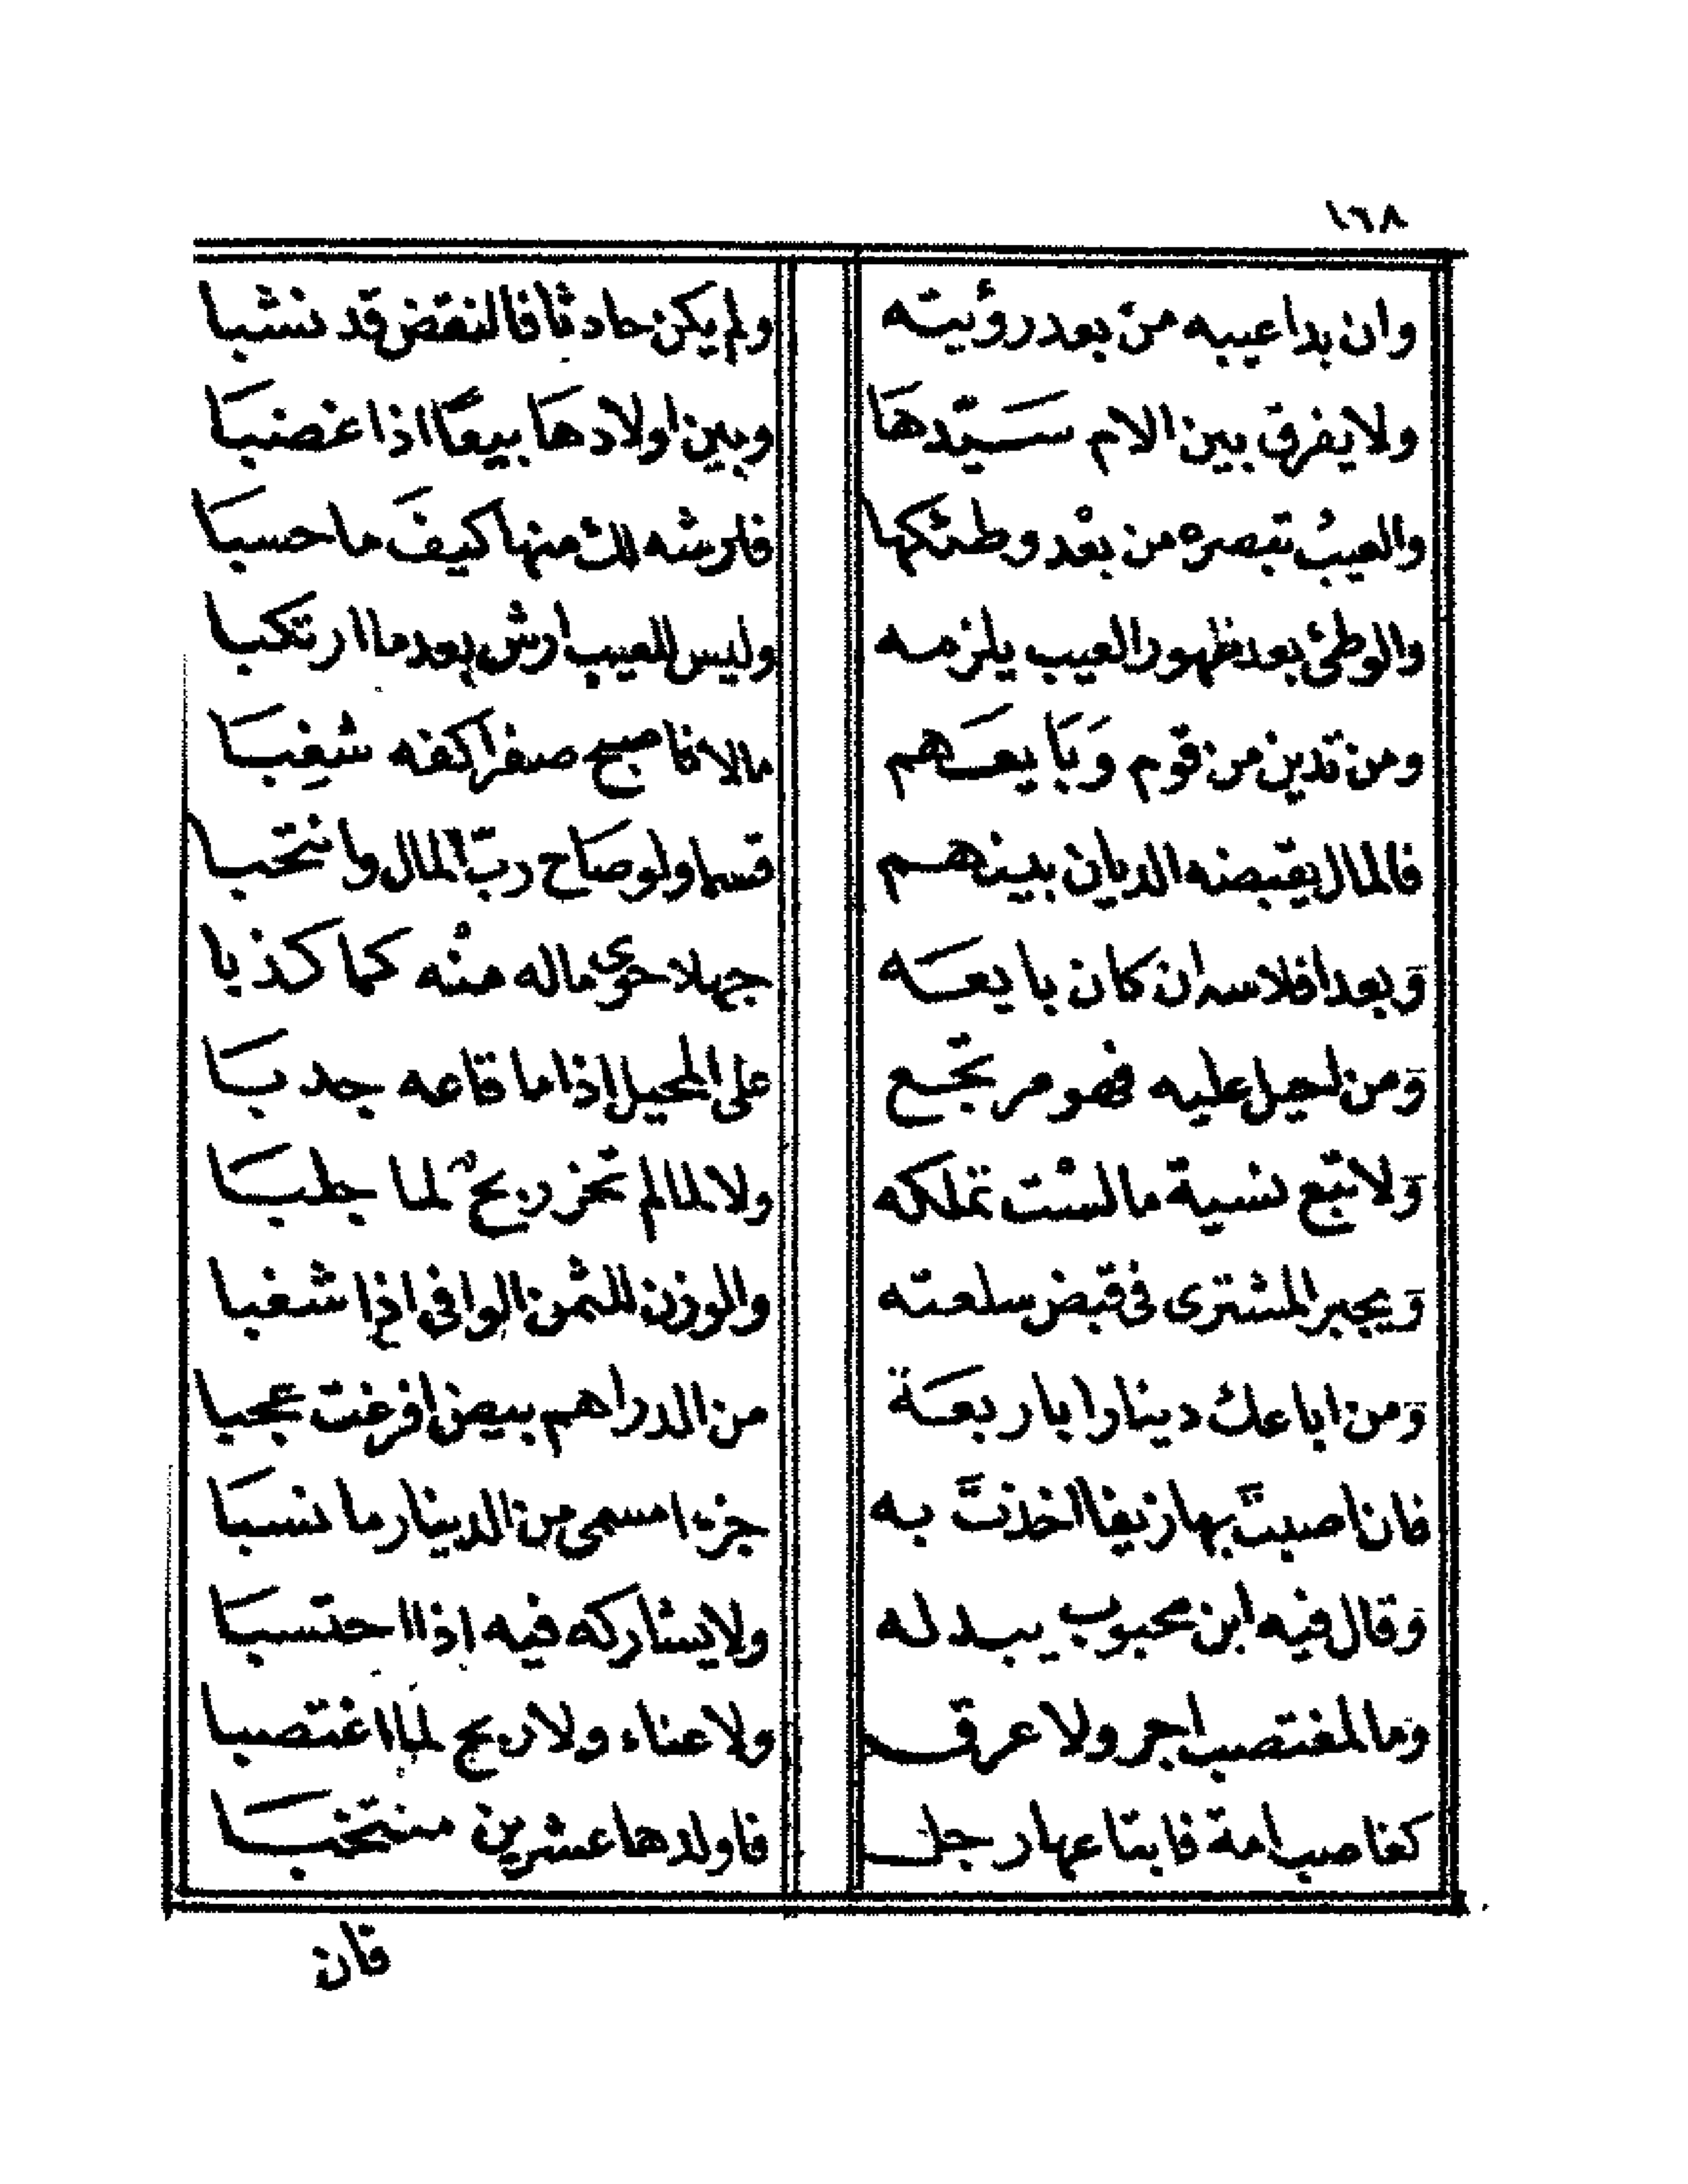 ١٦٨
وان بدا عيبه من بعد رؤيته ولم يكن حادثا فالنقض قد نشبا
ولا يفرق بين الام سَيّدهَا وبين اولادهَا بيعًا اذا غضبَا
والعيبُ تبصره من بعْد وطئكها فارشه لك منها كيفَ ما حسبَا
والوطئ بعد ظهور العيب يلزمه وليس للعيب ارش بعد ما ارتكبا
ومن تدين من قوم وَبَايعَهم مالا فاصبح صفرا كفه شغِبَا
فالمال يقبضه الديان بينهم قسما ولو صَاح ربّ المال وانتحبا
وَبعد افلاسه ان كان بايعَه جهلا حوى ماله منْه كما كذبا
وَمن احيل عليه فهو مرتجع على المحيل إذا ما قاعه جدبَا
وَلا تبع نسية ما لسْت تملكه ولا لما لم تحز ربحٌ لما جلبَا
وَيجبر المشترى فى قبض سلعته والوزن للثمن الوافى اذا شغبا
وَمن اباعك دينارا باربعَة من الدراهم بيض افرغت عجبا
فان اصبتَ بها زيفا اخذتَ به جزءا مسمى من الدينار ما نسبَا
وَقال فيه ابن محبوب يبدله ولا يشاركه فيه اذا احتسبَا
وَما لمغتصب اجر ولا عرق ولا عناء ولا ربح لما اغتصبا
كغاصب امة فابتاعها رجل فاولدها عشرين منتخبَا
فان